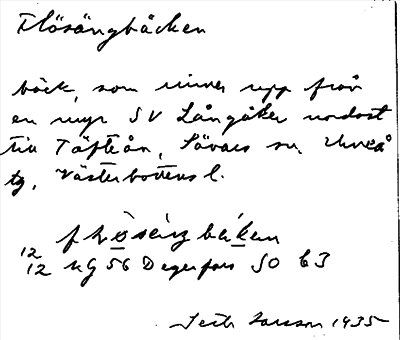 Flösängbäcken
bäck, som rinner upp från
en myr SV Långåker nordost
till Täfteån, Sävars sn, Umeå
tg, Västerbottens l.
12
12 KG 56 Degerfors SO b3
Larsson 1935